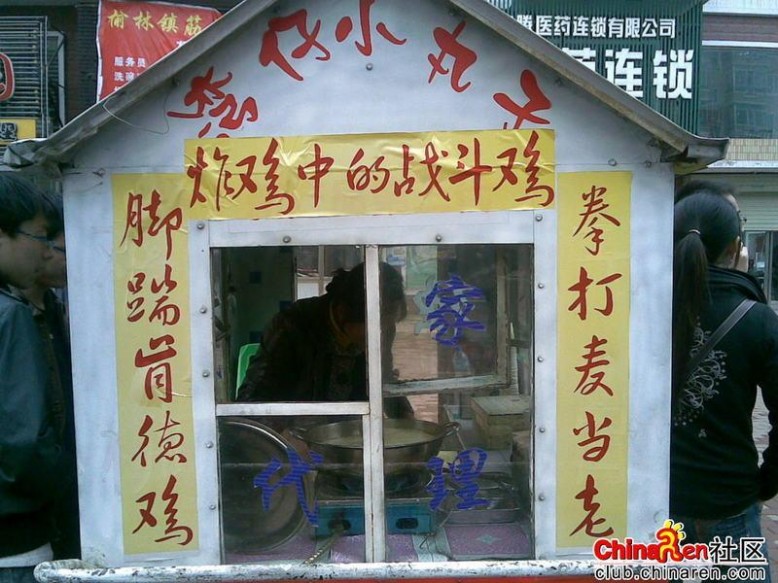 榆林镇筋
服务员
洗碗
医药连锁有限公司
药连锁
仔小丸子
炸鸡中的战斗鸡
脚踹肯德鸡
拳打麦当老
家
代理
ChinaRen社区
club.chinaren.com